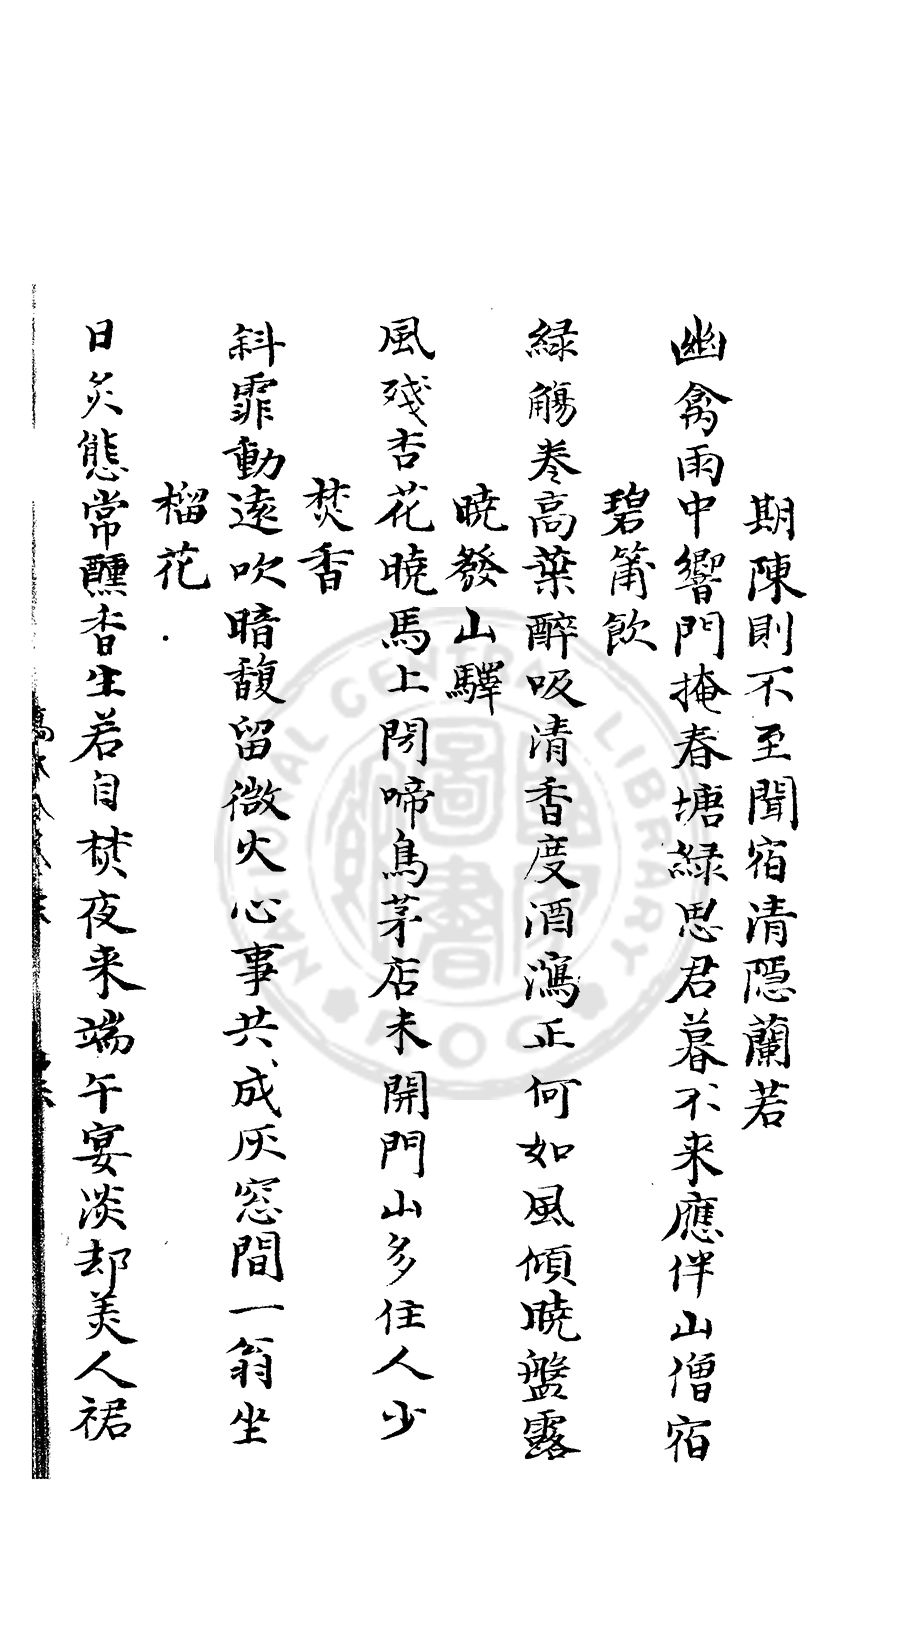 期陳則不至聞宿清隱蘭若
幽禽雨中響門掩春塘緑思君暮不来應伴山僧宿
碧筩飲
緑觴卷高葉醉吸清香度酒瀉正何如風傾曉盤露
曉發山驛
風殘杏花曉馬上閱啼鳥茅店未開門山多住人少
焚香
斜霏動遠吹暗馥留微火心事共成灰窓間一翁坐
榴花
日炙態常醺香生若自焚夜来端午宴淡却美人裙
NATIONAL CENTRAL LIBRARY
ROC